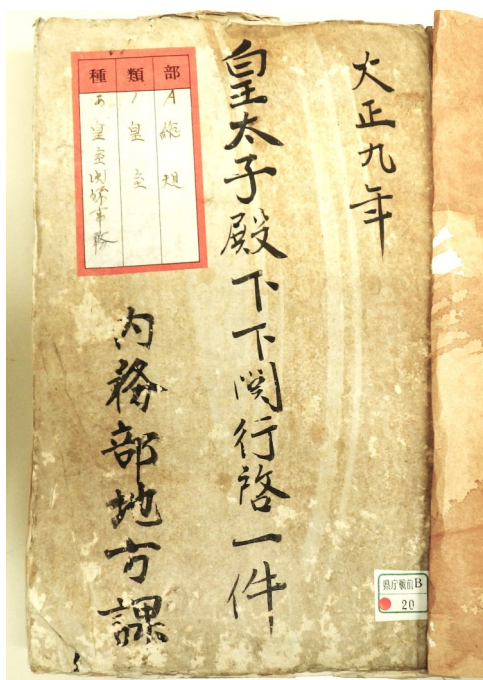 大正九年
皇太子殿下下関行啓一件
内務部地方課
部
A 総規
類
1 皇室
種
あ 皇室関係事務
県庁戦前B
20